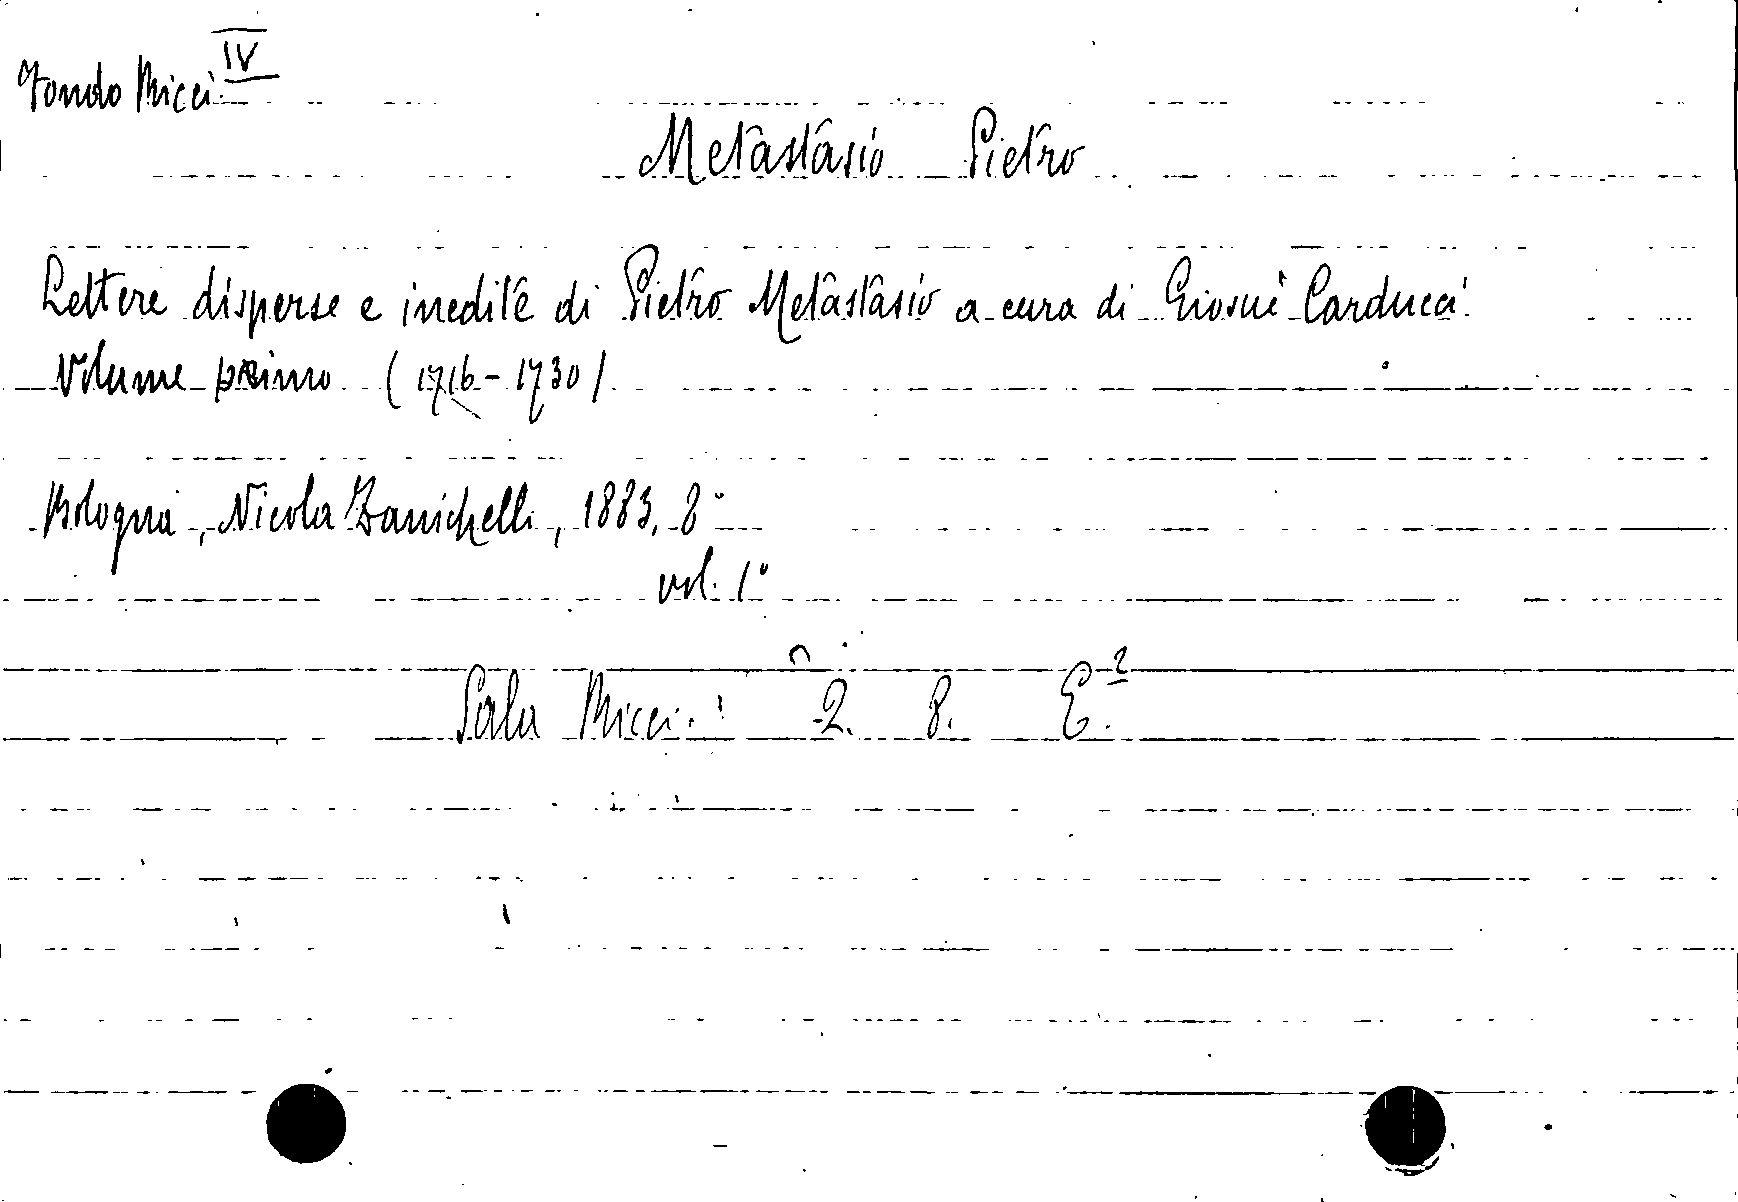 Fondo Ricci IV
Metastasio Pietro
Lettere disperse e inedite di Pietro Metastasio a cura di Giosuè Carducci
Volume primo (1716-1730)
Bologna, Nicola Zanichelli, 1883, 8°
vol. 1°
Sala Ricci: 2. 8. E.2